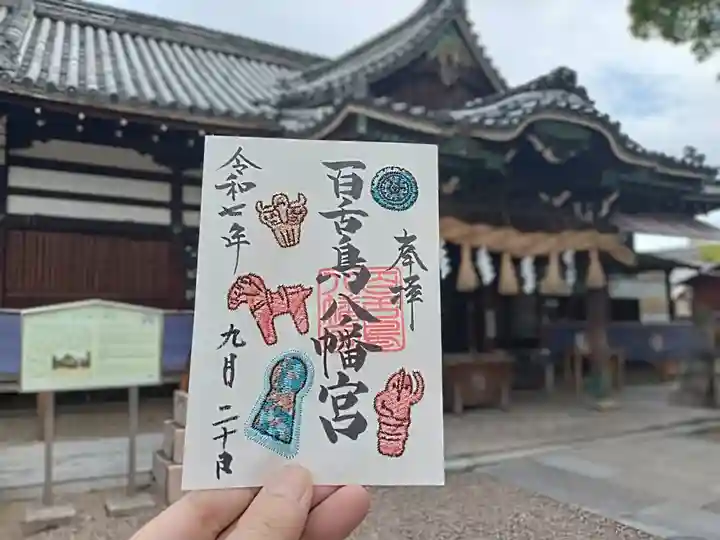 奉拝
百舌鳥八幡宮
令和七年
九月二十日